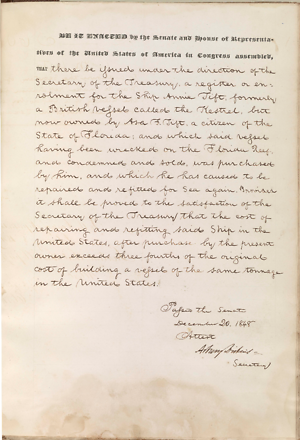 BE IT ENACTED by the Senate and House of Representa-
tives of the United States of America in Congress assembled,
THAT there be issued under the direction of the
Secretary of the Treasury, a register or en-
rolment for the Ship Annie Tift, formerly
a British vessel called the Kestrel, but
now owned by Asa F. Tift, a citizen of the
State of Florida; and which said vessel
having been wrecked on the Florida Reef,
and condemned and sold, was purchased
by him, and which he has caused to be
repaired and refitted for Sea again: Provided
it shall be proved to the satisfaction of the
Secretary of the Treasury that the cost of
repairing and refitting said Ship in the
United States, after purchase by the present
owner exceeds three fourths of the original
cost of building a vessel of the same tonnage
in the United States.
Passed the Senate
December 20, 1848
Attest
Secretary